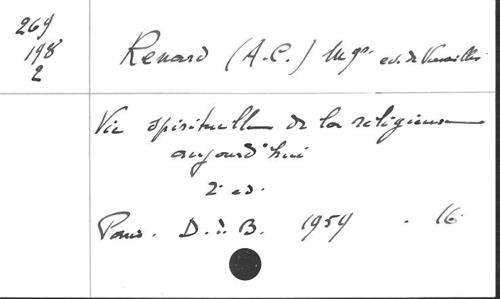 269
198
2
Renard (A.-C.) Mgr. ev. de Versailles
Vie spirituelle de la religieuse
aujourd'hui
2e ed.
Paris. D. d. B. 1959 . 16.